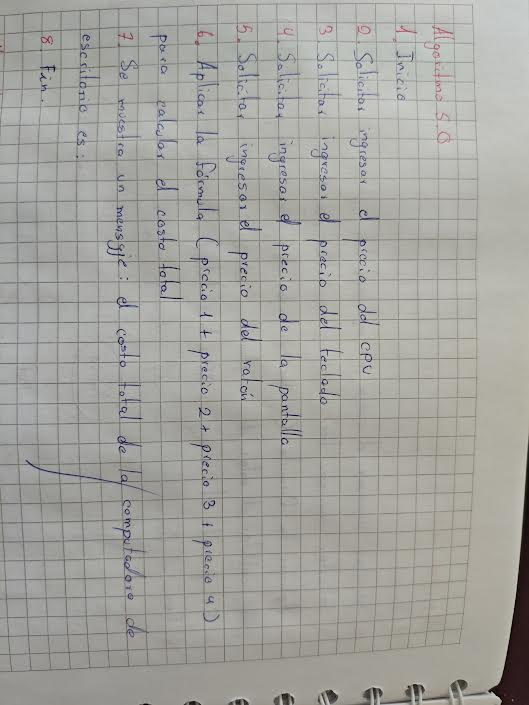 Algoritmo 5.B
1. Inicio
2. Solicitar ingresar el precio del CPU
3 Solicitar ingresar el precio del teclado
4. Solicitar ingresar el precio de la pantalla
5. Solicitar ingresar el precio del ratón
6. Aplicar la fórmula (precio 1 + precio 2 + precio 3 + precio 4)
para calcular el costo total
7. Se muestra un mensaje: el costo total de la computadora de
escritorio es:
8. Fin.